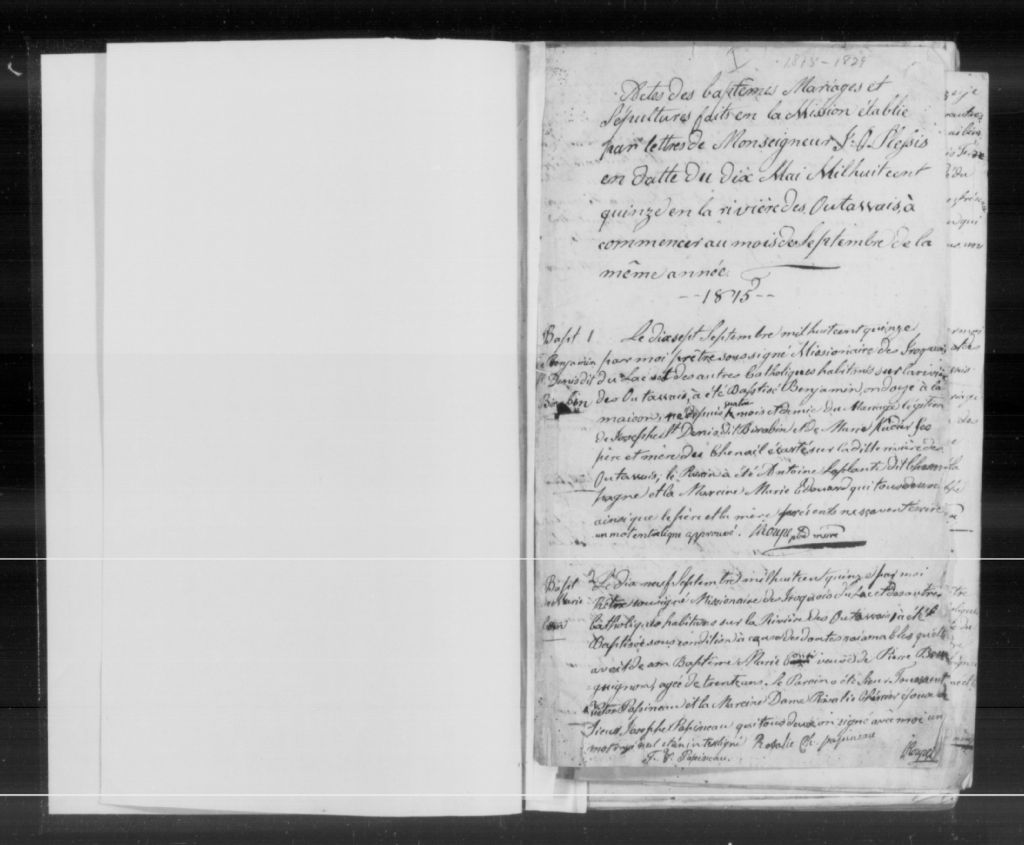 1815-1829
Actes des baptêmes Mariages et
Sépultures faits en la Mission établie
par lettres de Monseigneur J. O. Plessis
en datte du dix Mai Mil huit cent
quinze en la rivière des Outawais, à
commencer au mois de Septembre de la
même année.
--1815--
Bapt 1 Le dix sept Septembre mil huit cent quinze
Benjamin par moi prêtre soussigné Missionaire des Iroquois
St Denis dit du Lac et des autres Catholiques habitués sur la rivière
des Outawais, a été Baptisé Benjamin, ondoyé à la
maison, né depuis quatre mois et demie du Mariage légitime
de Josephe St Denis dit et de Marie ses
père et mère des Chenail écarté sur la ditte rivière des
Outawais; le Parain a été Antoine Laplante dit Cham
pagne et la Mareine Marie Edouard qui tous deux
ainsi que le père et la mère présents ne savent écrire
un mot en aligne approuvé. Roupe ptre miss
Bapt 2 Le dix neuf Septembre mil huit cent quinze par moi
Marie Prêtre soussigné Missionaire des Iroquois du Lac et des autres
Catholiques habitués sur la Rivière des Outawais, a été
Baptisée sous condition à cause des doutes raisonables qu'elle
avoit de son Baptême Marie veuve de Pierre Bour
quignon, agée de trente ans. Le Parain a été Sieur Toussaint
Victor Papineau et la Mareine Dame Rosalie Cherrier épouse de
Sieur Josephe Papineau qui tous deux ont signé avec moi un
mot rayé nul et un interligné Rosalie Ch. papineau
T. V. Papineau. Roupe